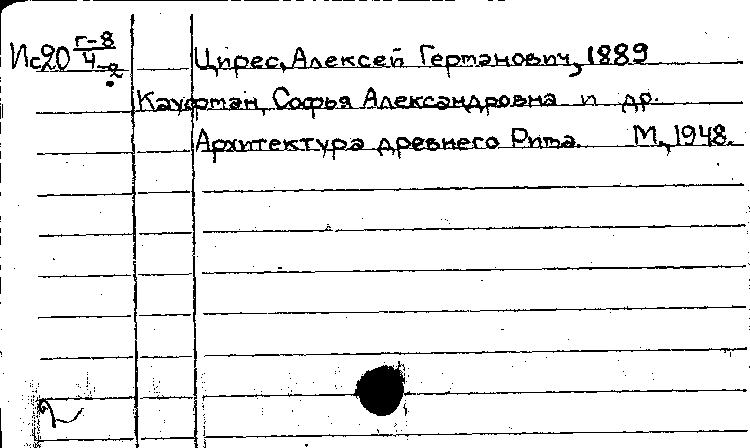 Ис20 г-8/4-2 Цирес, Алексей Германович, 1889
Кауфман, Софья Александровна и др.
Архитектура древнего Рима. М., 1948.
2